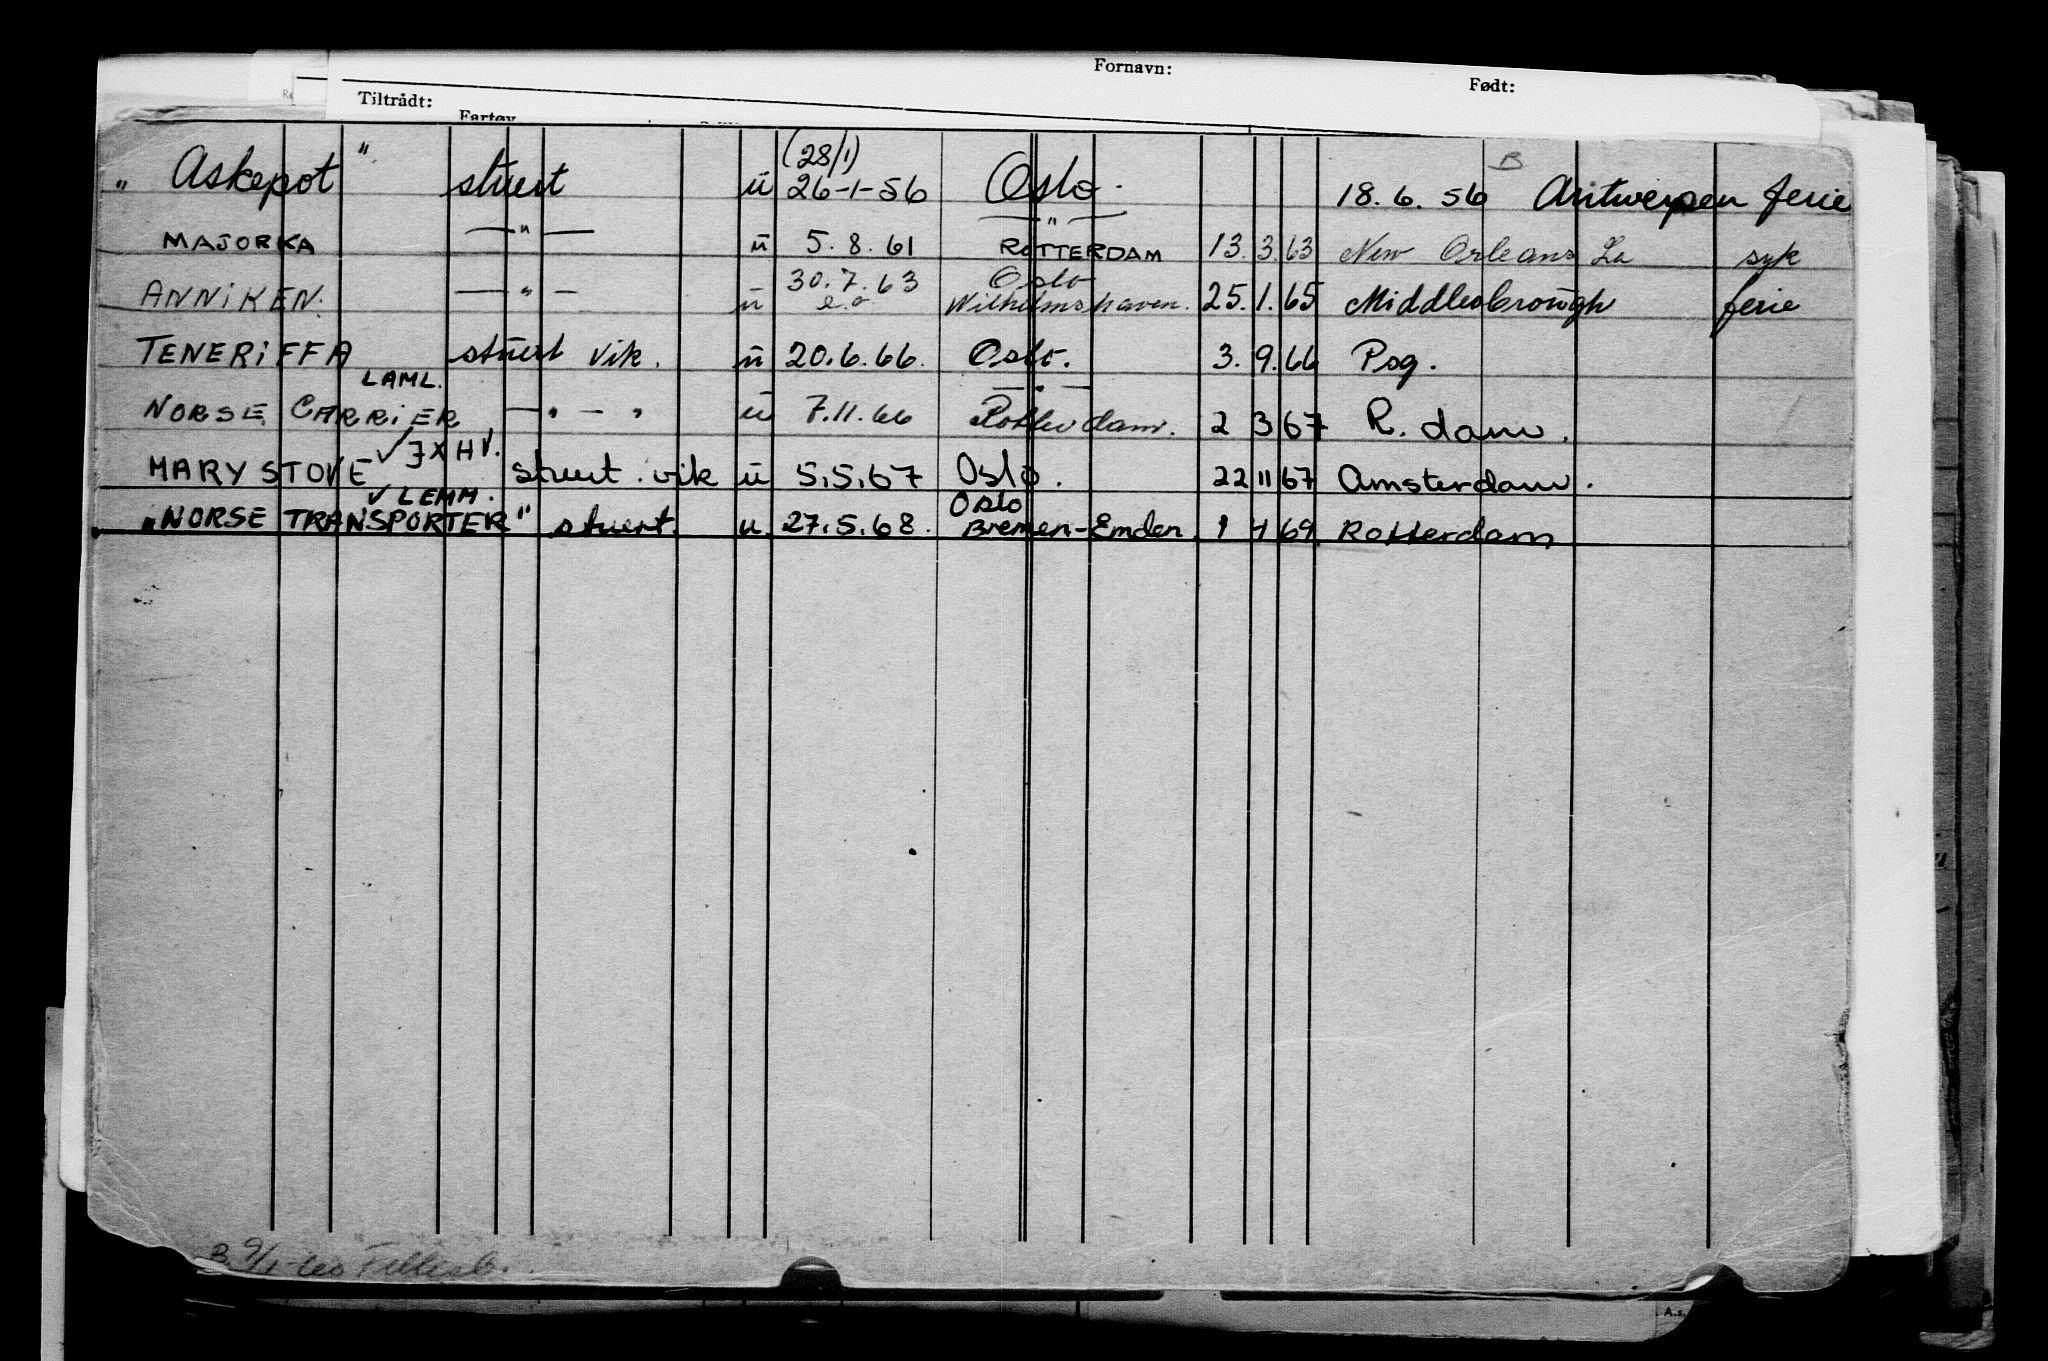 Fornavn:
Født:
Tiltrådt:
Fartøy
(28/1) B
„ Askepot " stuert u 26-1-56 Oslo. 18. 6. 56 Antwerpen ferie
MAJORKA —"— u 5. 8. 61 —"— ROTTERDAM 13. 3. 63 New Orleans La syk
30.7.63 Oslo
ANNIKEN. —"— u e.o Wilhelmshaven. 25. 1. 65 Middlesbrough ferie
TENERIFFA stuert vik. u 20.6.66. Oslo. 3. 9. 66 Psg.
LAML. —"—
NORSE CARRIER —"— " u 7.11.66 Rotterdam. 2 3 67 R. dam.
√ JXHV.
MARY STOVE stuert. vik u 5.5.67 Oslo. 22 11 67 Amsterdam.
√ LEMM. Oslo
„NORSE TRANSPORTER" stuert. u. 27.5.68. Bremen-Emden. 1 4 69. Rotterdam
A.s.